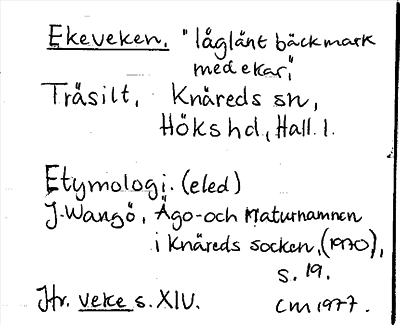 Ekeveken. "låglänt bäckmark
med ekar",
Träsilt, Knäreds sn,
Höks hd., Hall. l.
Etymologi. (eled)
J. Wangö, Ägo- och Naturnamnen
i Knäreds socken, (1970),
s. 19.
Jfr. veke s. XIV. CM 1977.